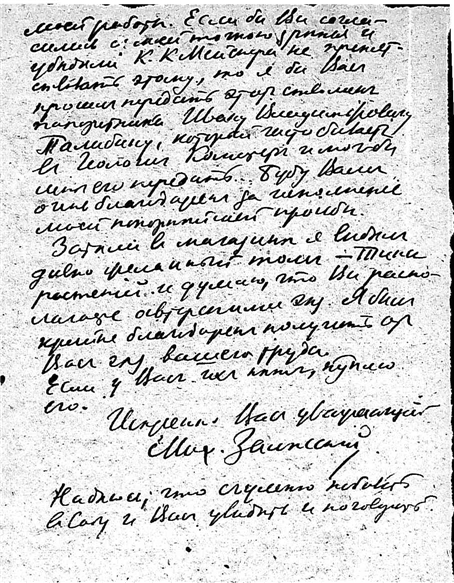 моей работы. Если бы Вы согла-
сились с моей точкою зрения и
убедили К. К. Мейснера не препят-
ствовать этому, то я бы Вас
просил передать этот ствол
папоротника Ивану Владимировичу
Палибину, который часто бывает
в Геологич. Комитете и мог бы
мне его передать. Буду Вам
очень благодарен за исполнение
моей покорнейшей просьбы.
Затем в магазине я видел
давно желанный томик —
растений и думаю, что Вы распо-
лагаете авторскими экз. Я был
крайне благодарен получить от
Вас экз. вашего труда.
Если у Вас их нет, куплю
его.
Искренно Вас уважающий
Мих. Залесский
Надеюсь, что случится побывать
в Саду и Вас увидеть и поговорить.